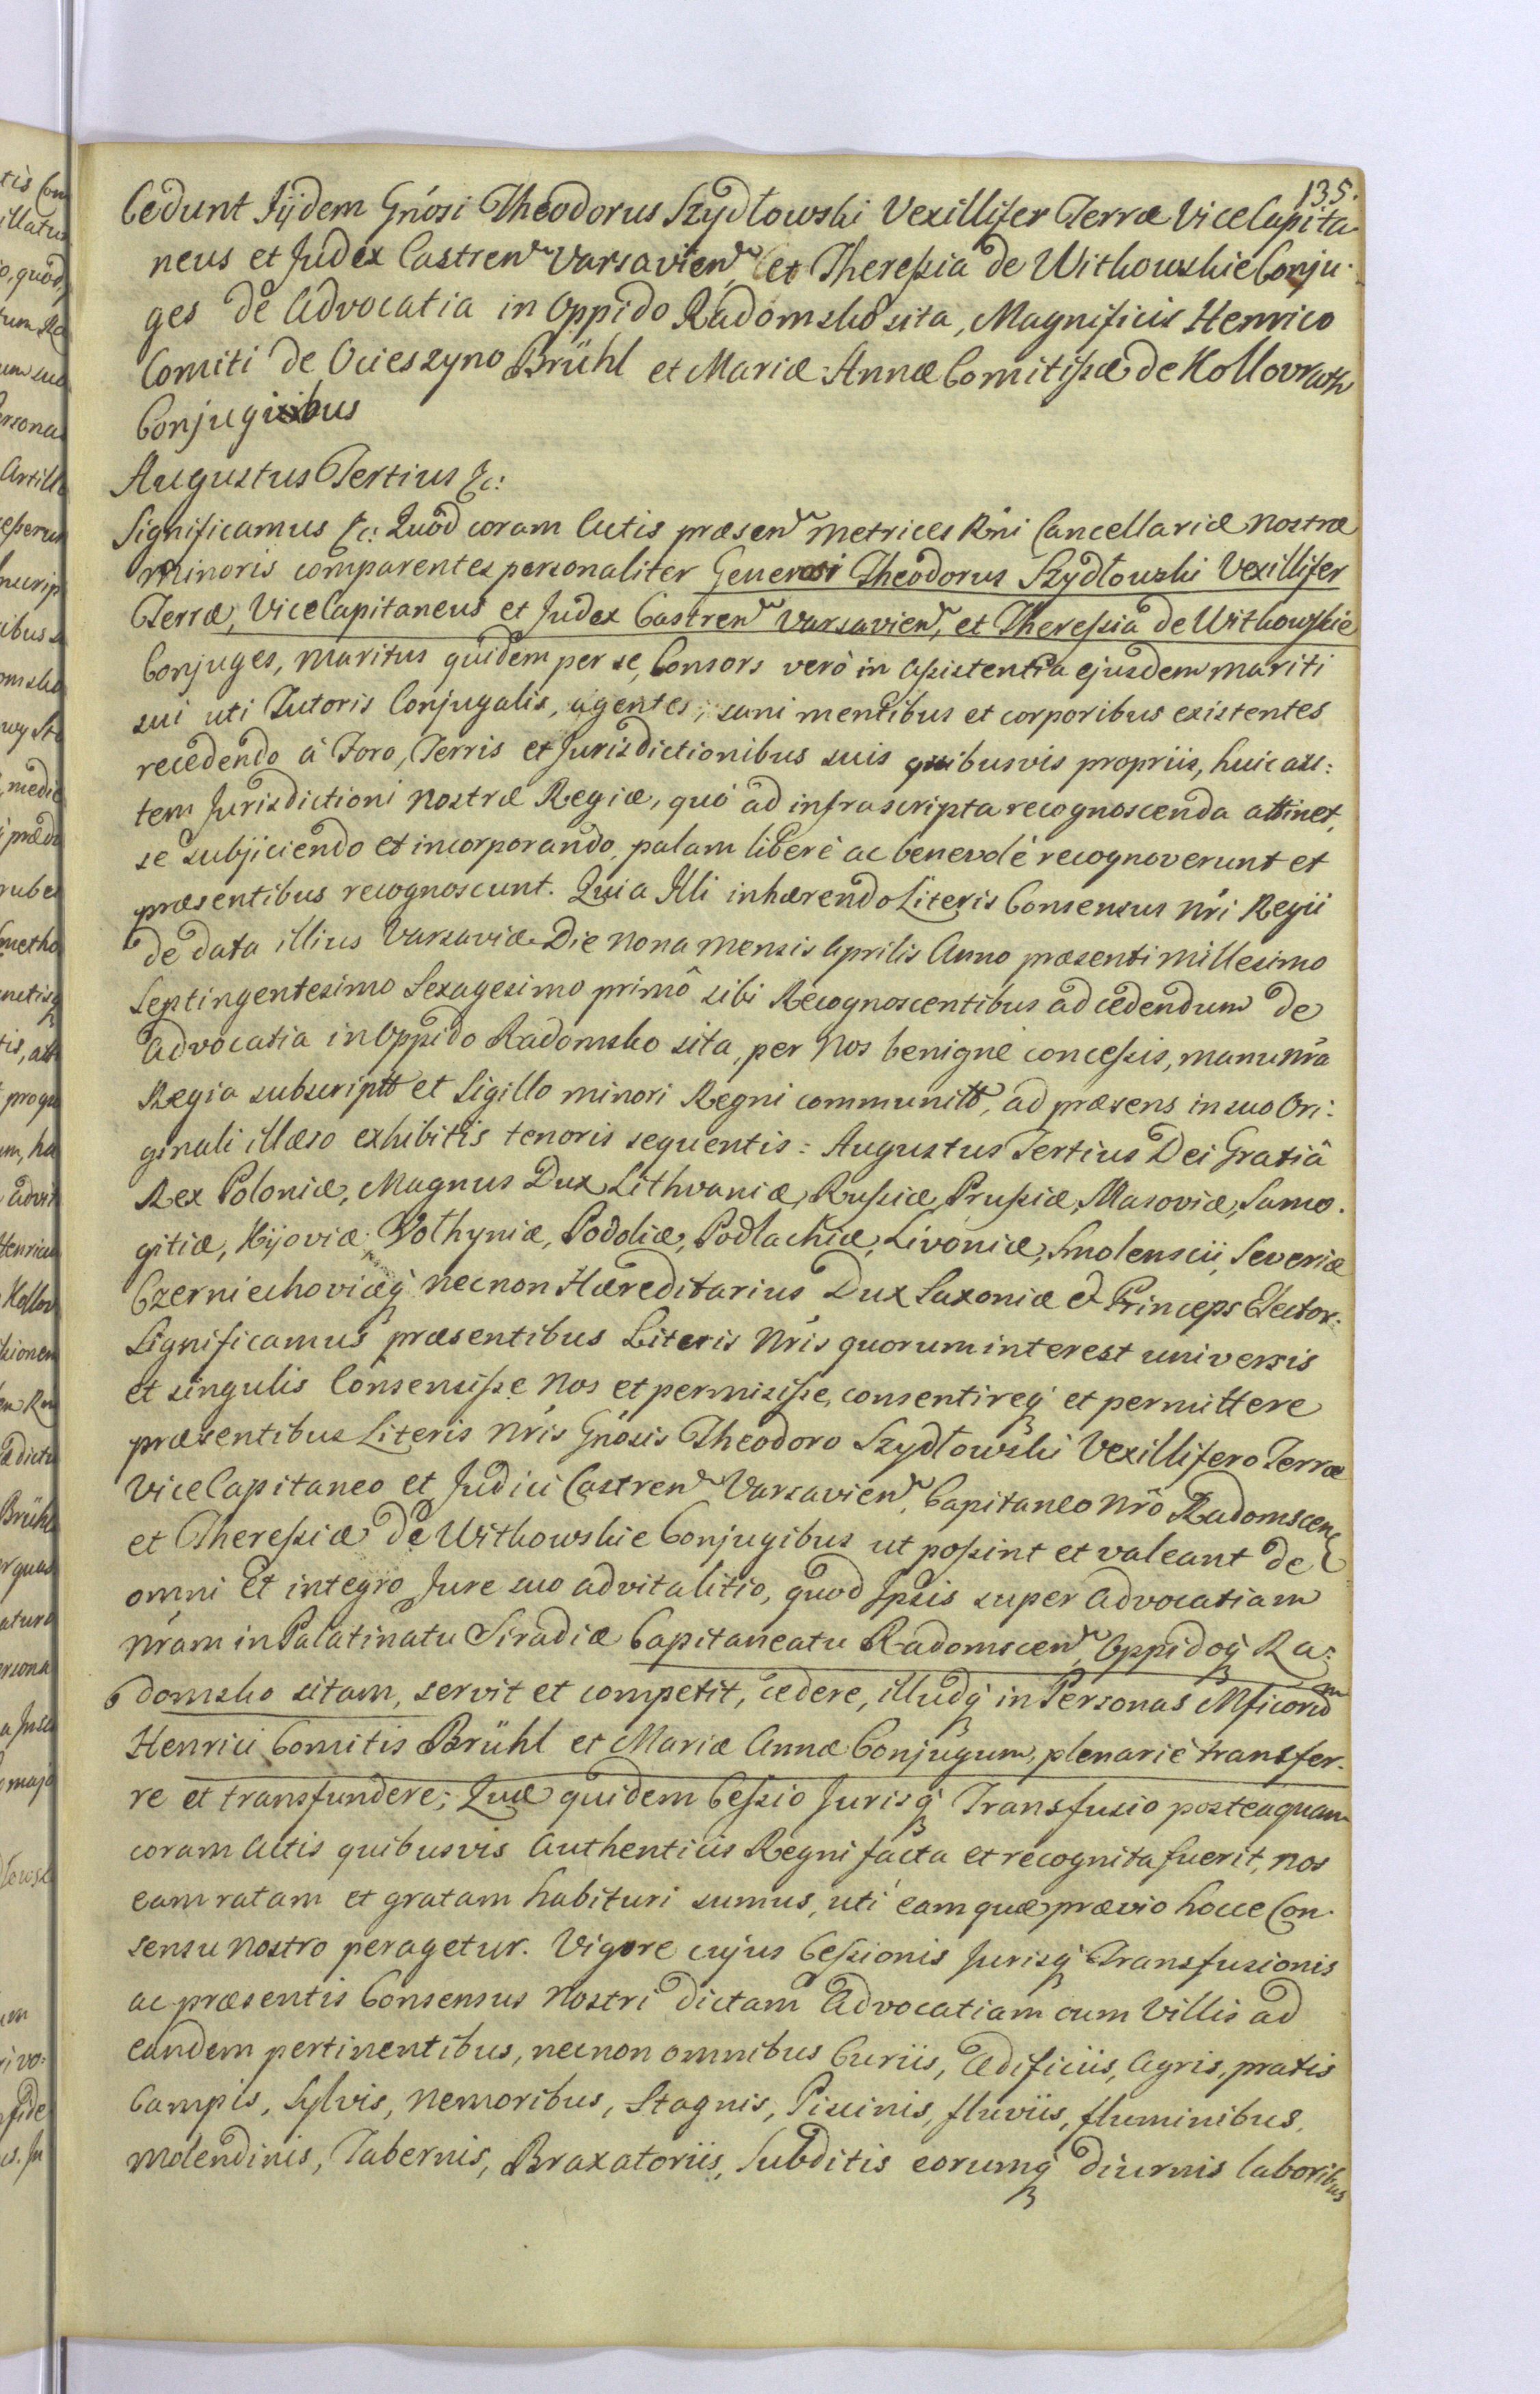 135.
Cedunt Iijdem Gn̄osi Theodorus Szydłowski Vexillifer Terræ Vice Capita-
neus et Judex Castren Varsavien, et Theressia de Witkowskie Conju-
ges de Advocatia in Oppido Radomsko sita, Magnificis Henrico
Comiti de Ocieszyno Brühl et Mariæ Annæ Comitissæ de Kollovrath
Conjugibus
Augustus Tertius &c:
Significamus &c: Quod coram Actis præsen Metrices Rn̄i Cancellariæ nostræ
minoris comparentes personaliter Generosi Theodorus Szydłowski Vexillifer
Terræ, Vice Capitaneus et Judex Castren Varsavien, et Theressia de Witkowskie
Conjuges, maritus quidem per se, Consors verò in assistentia ejusdem mariti
sui uti Tutoris Conjugalis, agentes, sani mentibus et corporibus existentes
recedendo à Foro, Terris et Jurisdictionibus suis quibusvis propriis, huic au=
tem Jurisdictioni nostræ Regiæ, quò ad infrascripta recognoscenda attinet,
se subjiciendo et incorporando, palam liberè ac benevolè recognoverunt et
præsentibus recognoscunt. Quia Illi inhærendo Literis Consensus Nr̄i Regii
de data illius Varsaviæ Die nona mensis Aprilis Anno præsenti millesimo
Septingentesimo Sexagesimo primô sibi Recognoscentibus ad cedendum de
Advocatia in Oppido Radomsko sita, per Nos benignè concessis, manu nr̄a
Regia subscriptt et Sigillo minori Regni communitt, ad præsens in suo Ori=
ginali illæso exhibitis tenoris sequentis: Augustus Tertius Dei Gratiâ
Rex Poloniæ, Magnus Dux Lithvaniæ, Russiæ, Prussiæ, Masoviæ, Samo-
gitiæ, Kijoviæ, Volhyniæ, Podoliæ, Podlachiæ, Livoniæ, Smolenscii, Severiæ
Czerniechoviæq́ necnon Hæreditarius Dux Saxoniæ et Princeps Elector.
Significamus præsentibus Literis Nr̄is quorum interest universis
et singulis Consensisse Nos et permisisse, consentireq́ et permittere
præsentibus Literis Nr̄is Gn̄osis Theodoro Szydłowski Vexillifero Terræ
Vice Capitaneo et Judici Castren Varsavien, Capitaneo Nr̄o Radomscen
et Theressiæ de Witkowskie Conjugibus ut possint et valeant de
omni et integro Jure suo advitalitio, quod Ipsis super Advocatiam
nr̄am in Palatinatu Siradiæ Capitaneatu Radomscen, Oppidoq́ Ra=
domsko sitam, servit et competit, cedere, illudq́ in Personas Mficorum
Henrici Comitis Brühl et Mariæ Annæ Conjugum, plenariè transfer-
re et transfundere; Quæ quidem Cessio Jurisq́ Transfusio posteaquam
coram Actis quibusvis Authenticis Regni facta et recognita fuerit, nos
eam ratam et gratam habituri sumus, uti eam quæ prævio hocce Con-
sensu nostro peragetur. Vigore cujus Cessionis Jurisq́ Transfusionis
ac præsentis Consensus Nostri dictam Advocatiam cum Villis ad
eandem pertinentibus, necnon omnibus Curiis, Ædificiis, Agris, pratis
Campis, Sylvis, Nemoribus, Stagnis, Piscinis, fluviis, fluminibus,
Molendinis, Tabernis, Braxatoriis, Subditis eorumq́ diurnis laboribus